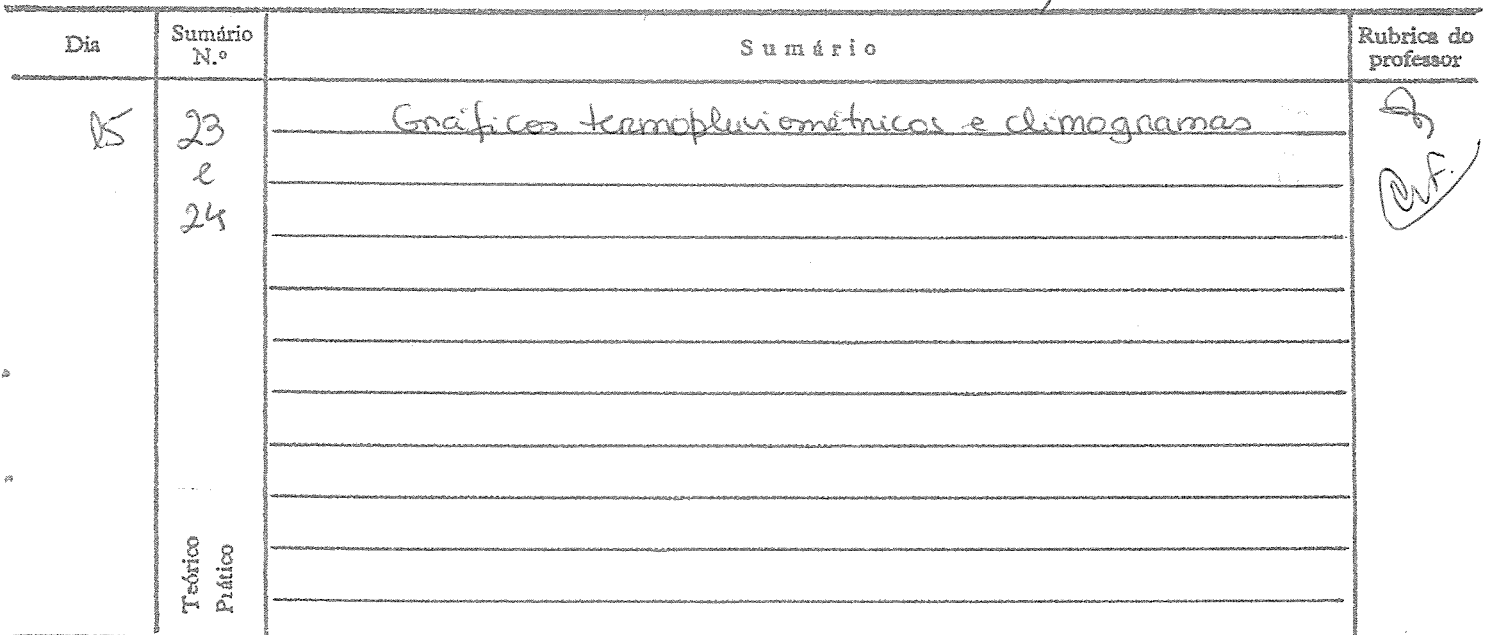 Dia
Sumário N.º
Sumário
Rubrica do professor
15
23
e
24
Gráficos termopluviométricos e climogramas
Teórico
Prático